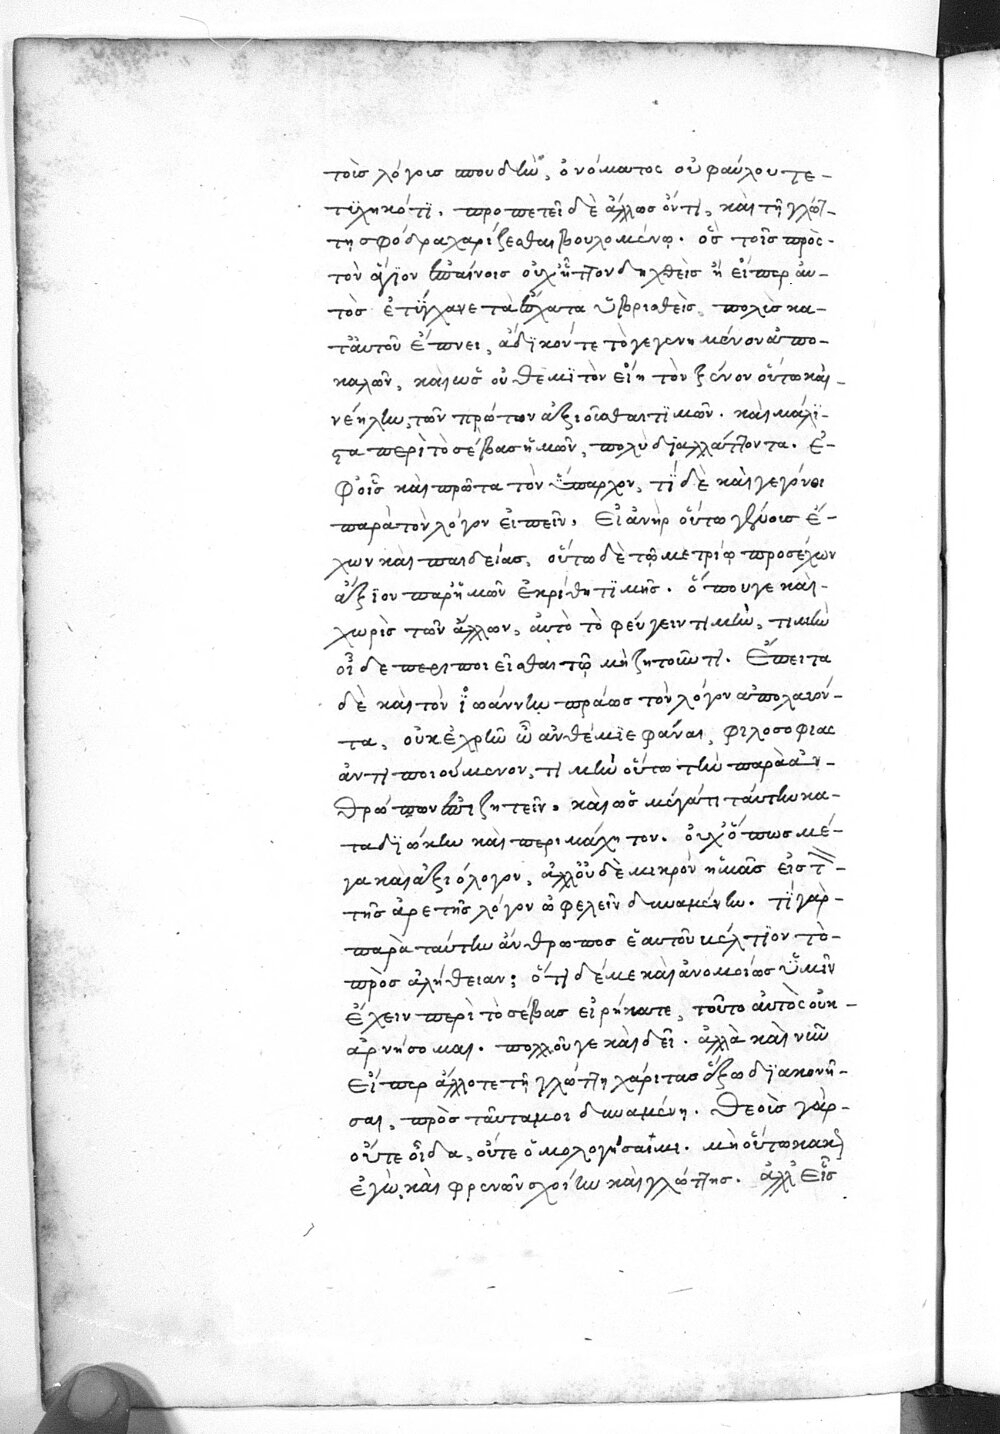 τοῖς λόγοις σπουδὴν, ὀνόματος οὐ φαύλου τε-
τυχηκότι. προπετεῖ δὲ ἄλλως ὄντι, καὶ τῇ γλώτ-
τῃ σφόδρα χαρίζεσθαι βουλομένῳ. ὃς τοῖς πρὸς
τὸν ἅγιον ἐπαίνοις οὐχ ἧττον δηχθεὶς ἢ εἴπερ αὐ-
τὸς ἐτύγχανε τὰ ἔσχατα ὑβρισθεὶς, πολὺς κα-
τ' αὐτοῦ ἔπνει, ἄδικόν τε τὸ γεγενημένον ἀπο-
καλῶν, καὶ ὡς οὐ θεμιτὸν εἴη τὸν ξένον οὕτω καὶ
νέηλυν, τῶν πρώτων ἀξιοῦσθαι τιμῶν. καὶ μάλι-
στα περὶ τὸ σέβας ἡμῶν, πολὺ διαλλάττοντα. ἐ-
φ' οἷς καὶ πρῶτα τὸν ὕπαρχον, τί δὲ καὶ γέγονε
παρὰ τὸν λόγον εἰπεῖν, εἰ ἀνὴρ οὕτω γένους ἔ-
χων καὶ παιδείας, οὕτω δὲ τῷ μετρίῳ προσέχων
ἄξιον παρ' ἡμῶν ἐκρίθη τιμῆς. ὅπου γε καὶ
χωρὶς τῶν ἄλλων, αὐτὸ τὸ φεύγειν τιμὴν, τιμὴν
οἶδε περιποιεῖσθαι τῷ μὴ ζητοῦντι. ἔπειτα
δὲ καὶ τὸν ἰωάννην πράως τὸν λόγον ἀπολαβόν-
τα, οὐκ ἐχρῆν ὦ ἀνθέμιε φάναι, φιλοσοφίας
ἀντιποιούμενον, τιμὴν οὕτω τὴν παρὰ ἀν-
θρώπων ἐπιζητεῖν. καὶ ὡς μέγα τι ταύτην κα-
ταδιώκειν καὶ περιμάχητον. οὐχ ὅπως μέ-
γα καὶ ἀξιόλογον, ἀλλ' οὐδὲ μικρὸν ἡμᾶς εἰς τ-
τῆς ἀρετῆς λόγον ὠφελεῖν δυναμένην. τί γὰρ
παρὰ ταύτην ἄνθρωπος ἑαυτοῦ βελτίων τὸ
πρὸς ἀλήθειαν; ὅτι δέ με καὶ ἀνομοίως ὑμῖν
ἔχειν περὶ τὸ σέβας εἰρήκατε, τοῦτο αὐτὸς οὐκ
ἀρνήσομαι. πολλοῦ γε καὶ δεῖ. ἀλλὰ καὶ νῦν
εἴπερ ἄλλοτε τῇ γλώττῃ χάριτας ἕξω διακονῆ-
σαι, πρὸς ταῦτά μοι δυναμένῃ. θεοὺς γὰρ
οὔτε οἶδα, οὔτε ὁμολογήσαιμι. μὴ οὕτω κακῶς
ἐγὼ, καὶ φρενῶν σχοίην καὶ γλώττης. ἀλλ' εἷς